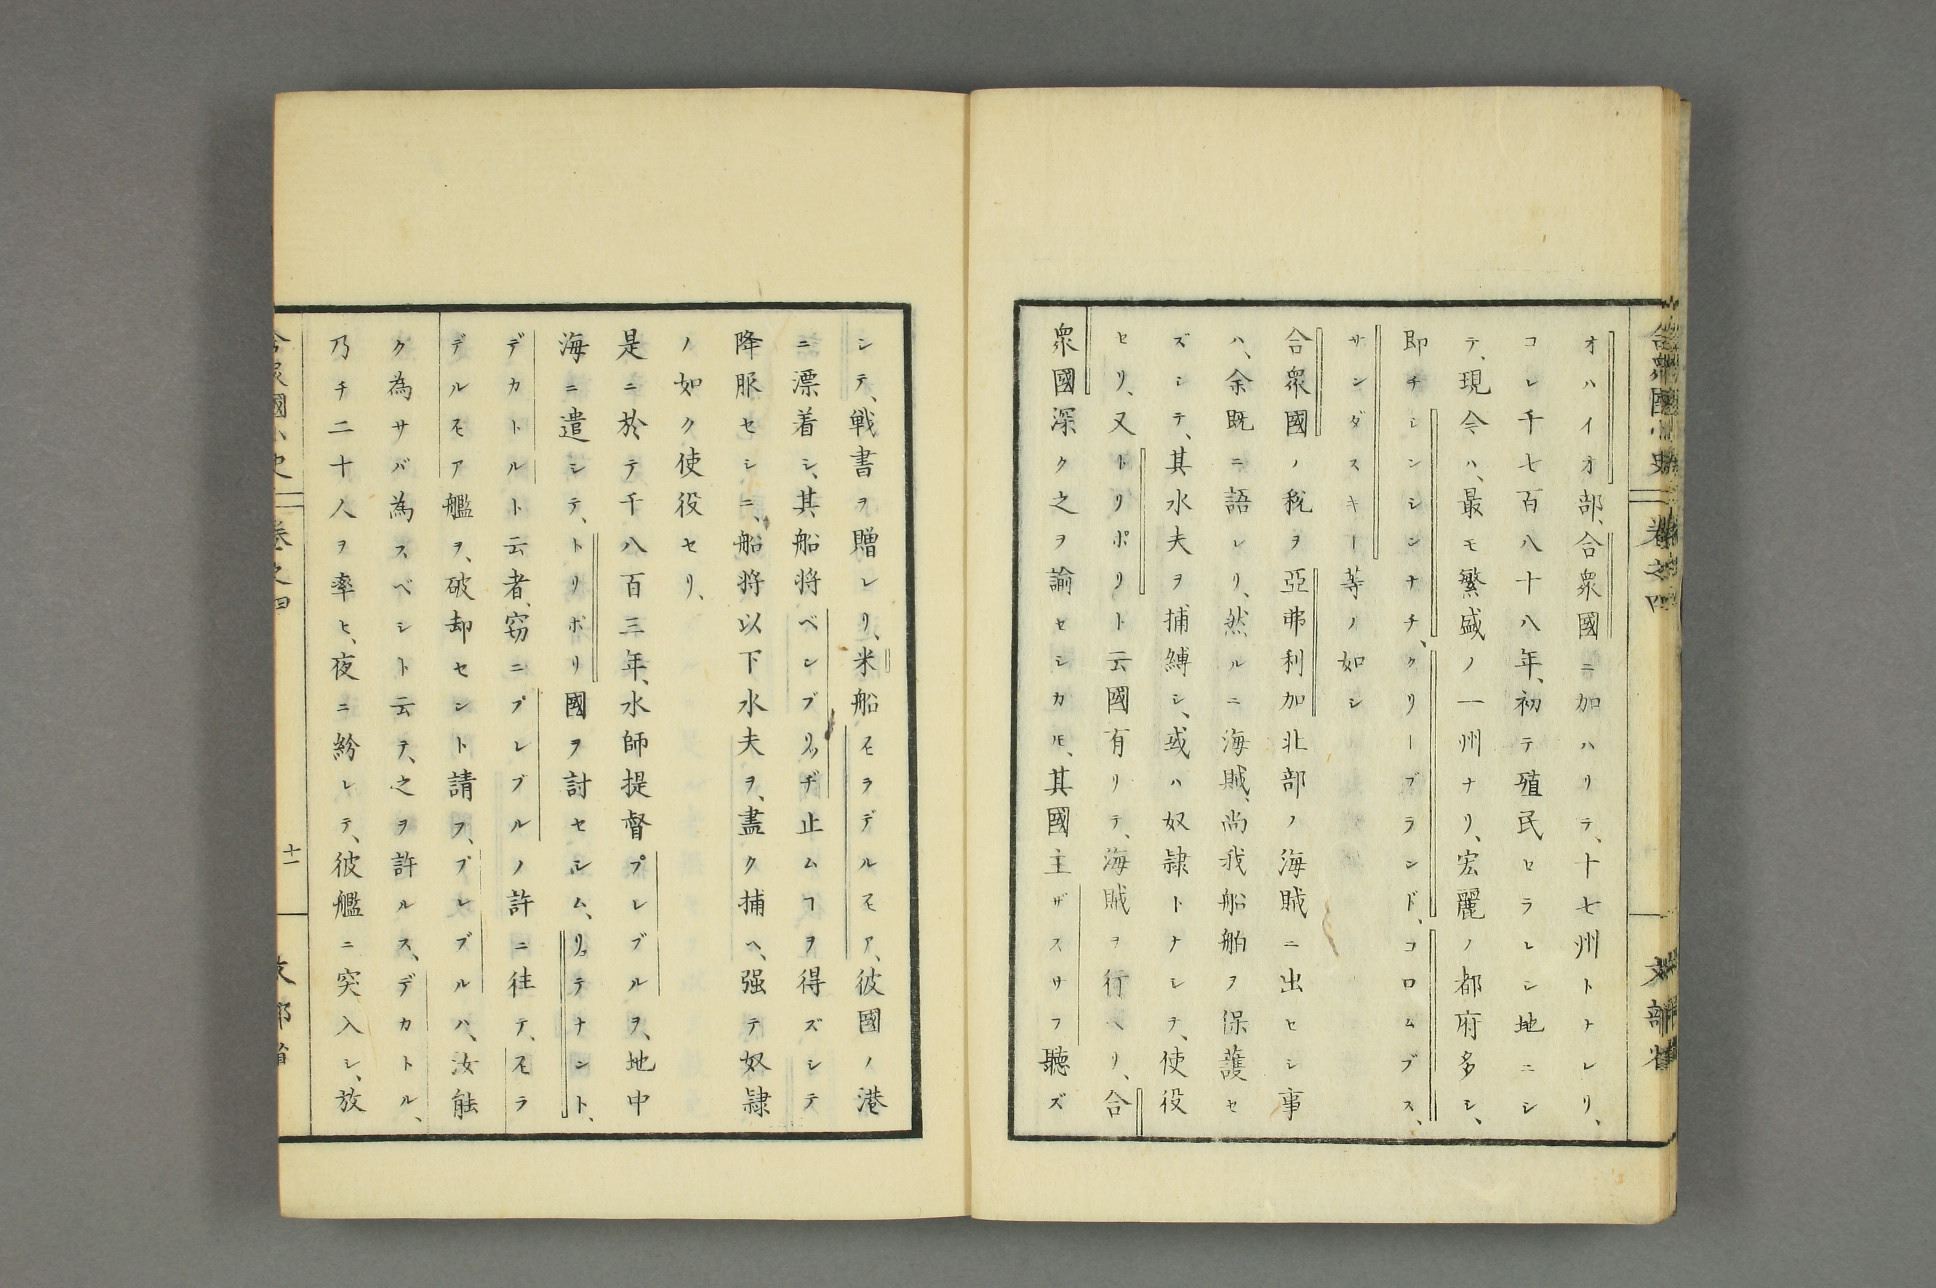 合衆國小史 卷之四 文部省
オハイオ部、合衆國ニ加ハリテ、十七州トナレリ、
コレ千七百八十八年、初テ殖民セラレシ地ニシ
テ、現今ハ、最モ繁盛ノ一州ナリ、宏麗ノ都府多シ、
即チシンシンナチ、クリーブランド、コロムブス、
サンダスキー等ノ如シ
合衆國ノ税ヲ亞弗利加北部ノ海賊ニ出セシ事
ハ、余既ニ語レリ、然ルニ海賊、尚我船舶ヲ保護セ
ズシテ、其水夫ヲ捕縛シ、或ハ奴隷トナシテ、使役
セリ、又トリポリト云國有リテ、海賊ヲ行ヘリ、合
衆國深ク之ヲ諭セシカ𪜈、其國主ザスサフ聽ズ
シテ、戦書ヲ贈レリ、米船モラデルモア、彼國ノ港
ニ漂着シ、其船将ベンブリッヂ止ムヿヲ得ズシテ
降服セシニ、船将以下水夫ヲ、盡ク捕ヘ、强テ奴隷
ノ如ク使役セリ、
是ニ於テ千八百三年、水師提督プレブルヲ、地中
海ニ遣シテ、トリポリ國ヲ討セシム、リュテナント、
デカトルト云者、窈ニプレブルノ許ニ往テ、モラ
デルモア艦ヲ、破却セント請フ、プレブルハ、汝能
ク為サバ為スベシト云テ、之ヲ許ルス、デカトル、
乃チ二十人ヲ率ヒ、夜ニ紛レテ、彼艦ニ突入シ、放
合衆國小史 卷之四 十一 文部省